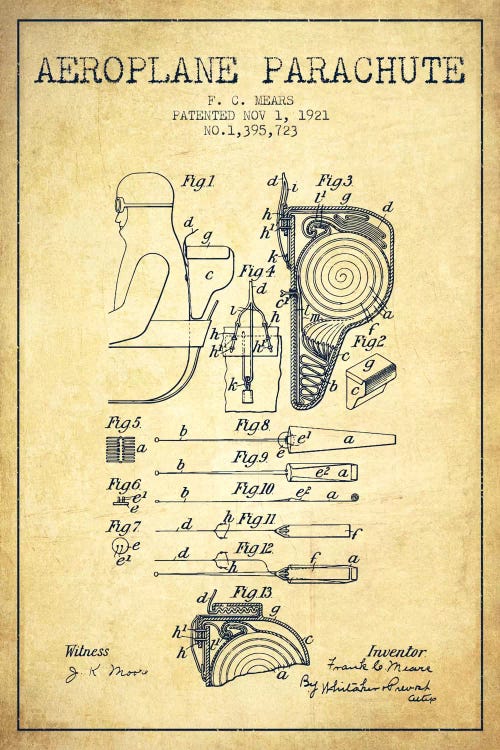 AEROPLANE PARACHUTE
F. C. MEARS
PATENTED NOV 1, 1921
NO.1,395,723
Fig.1
d
g
c
Fig.3
d
i
l¹
g
d
h
h¹
k
c¹
l
m
a
f
c
b
Fig.4
d
i
h
h
h¹
h¹
k
Fig.2
g
c
Fig.5
a
Fig.8
b
e¹
a
e
Fig.9
b
e² a
Fig.6
e¹
e
Fig.10
b
e²
a
Fig.7
e
e¹
Fig.11
d
h
f
Fig.12
d
h
f
a
Fig.13
d
g
h¹
h
l¹
c
a
Witness
J. K. Moore
Inventor
Frank C. Mears
By Whitaker Prevost
Attys